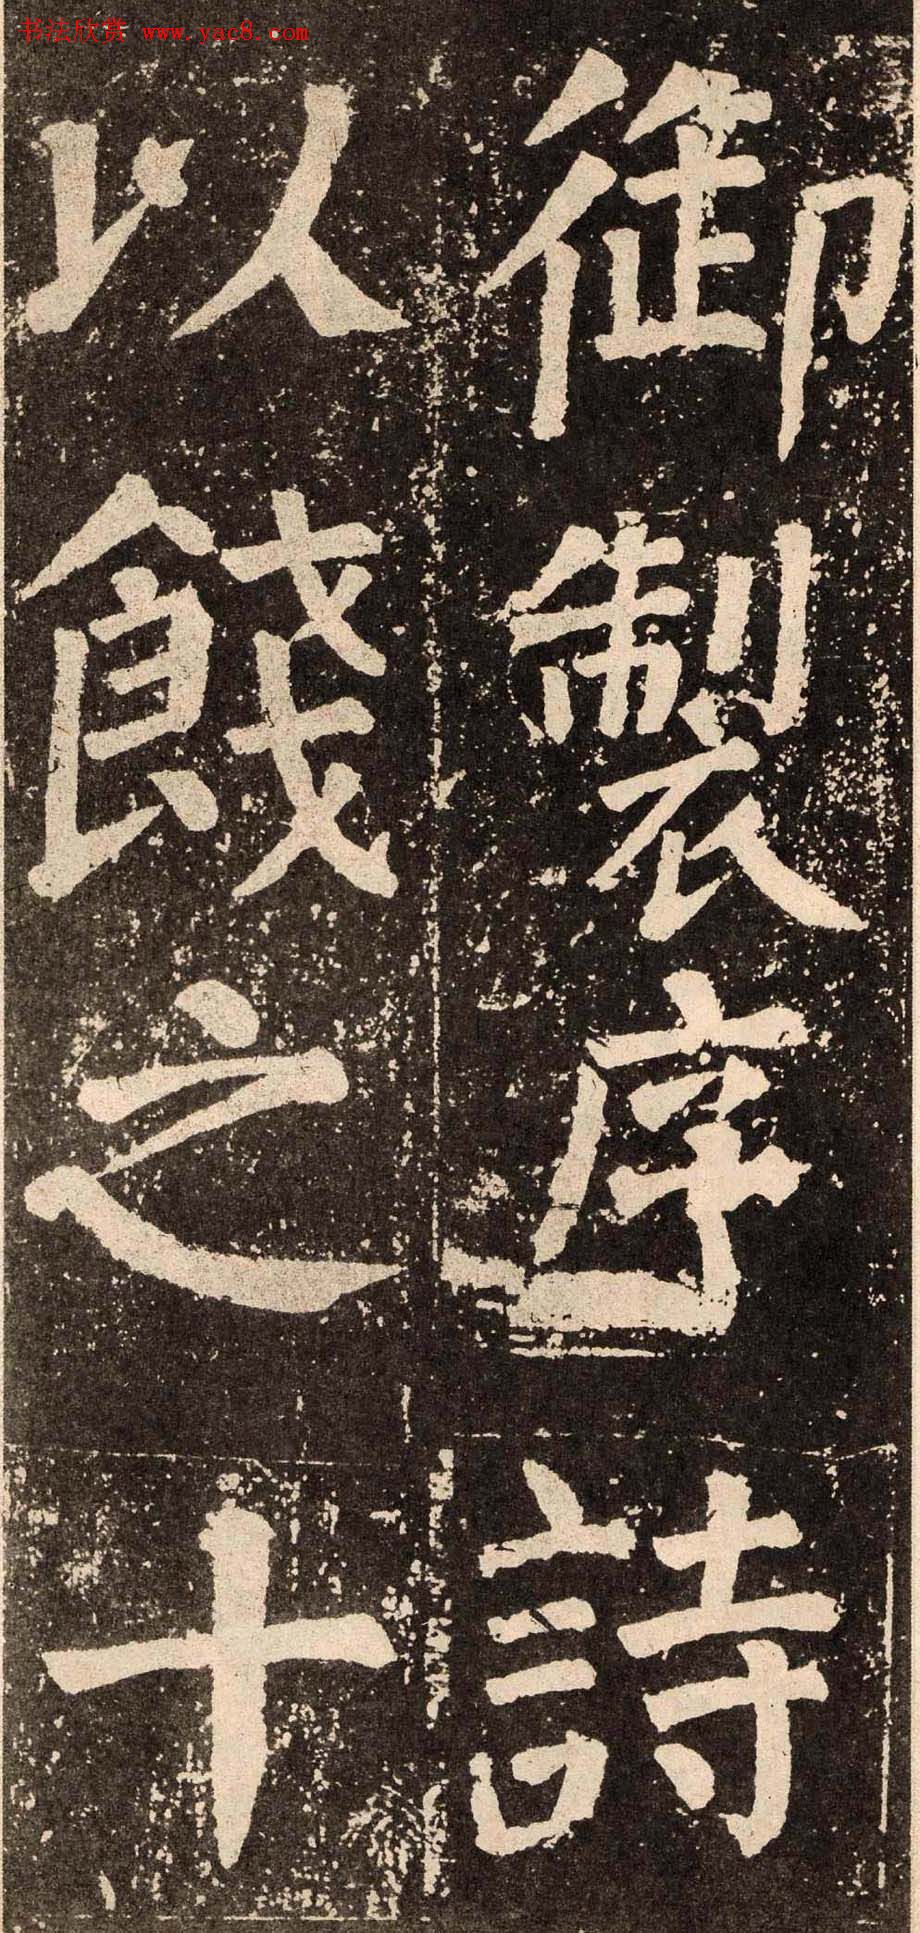 书法欣赏 www.yac8.com
御製序詩
以餞之十